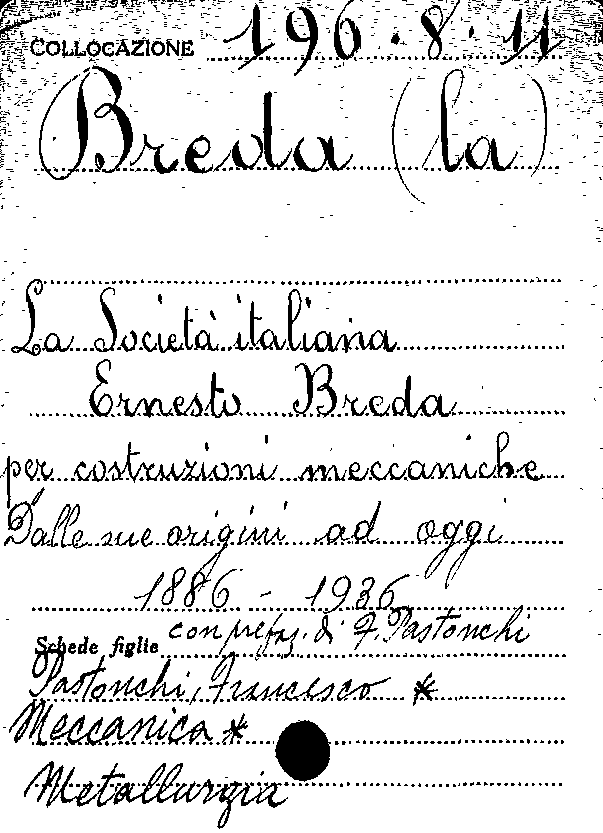 COLLOCAZIONE 196.8.11
Breda (la)
La Società italiana
Ernesto Breda
per costruzioni meccaniche
Dalle sue origini ad oggi
1886 - 1936
con prefaz. di F. Pastonchi
Schede figlie
Pastonchi, Francesco *
Meccanica *
Metallurgia